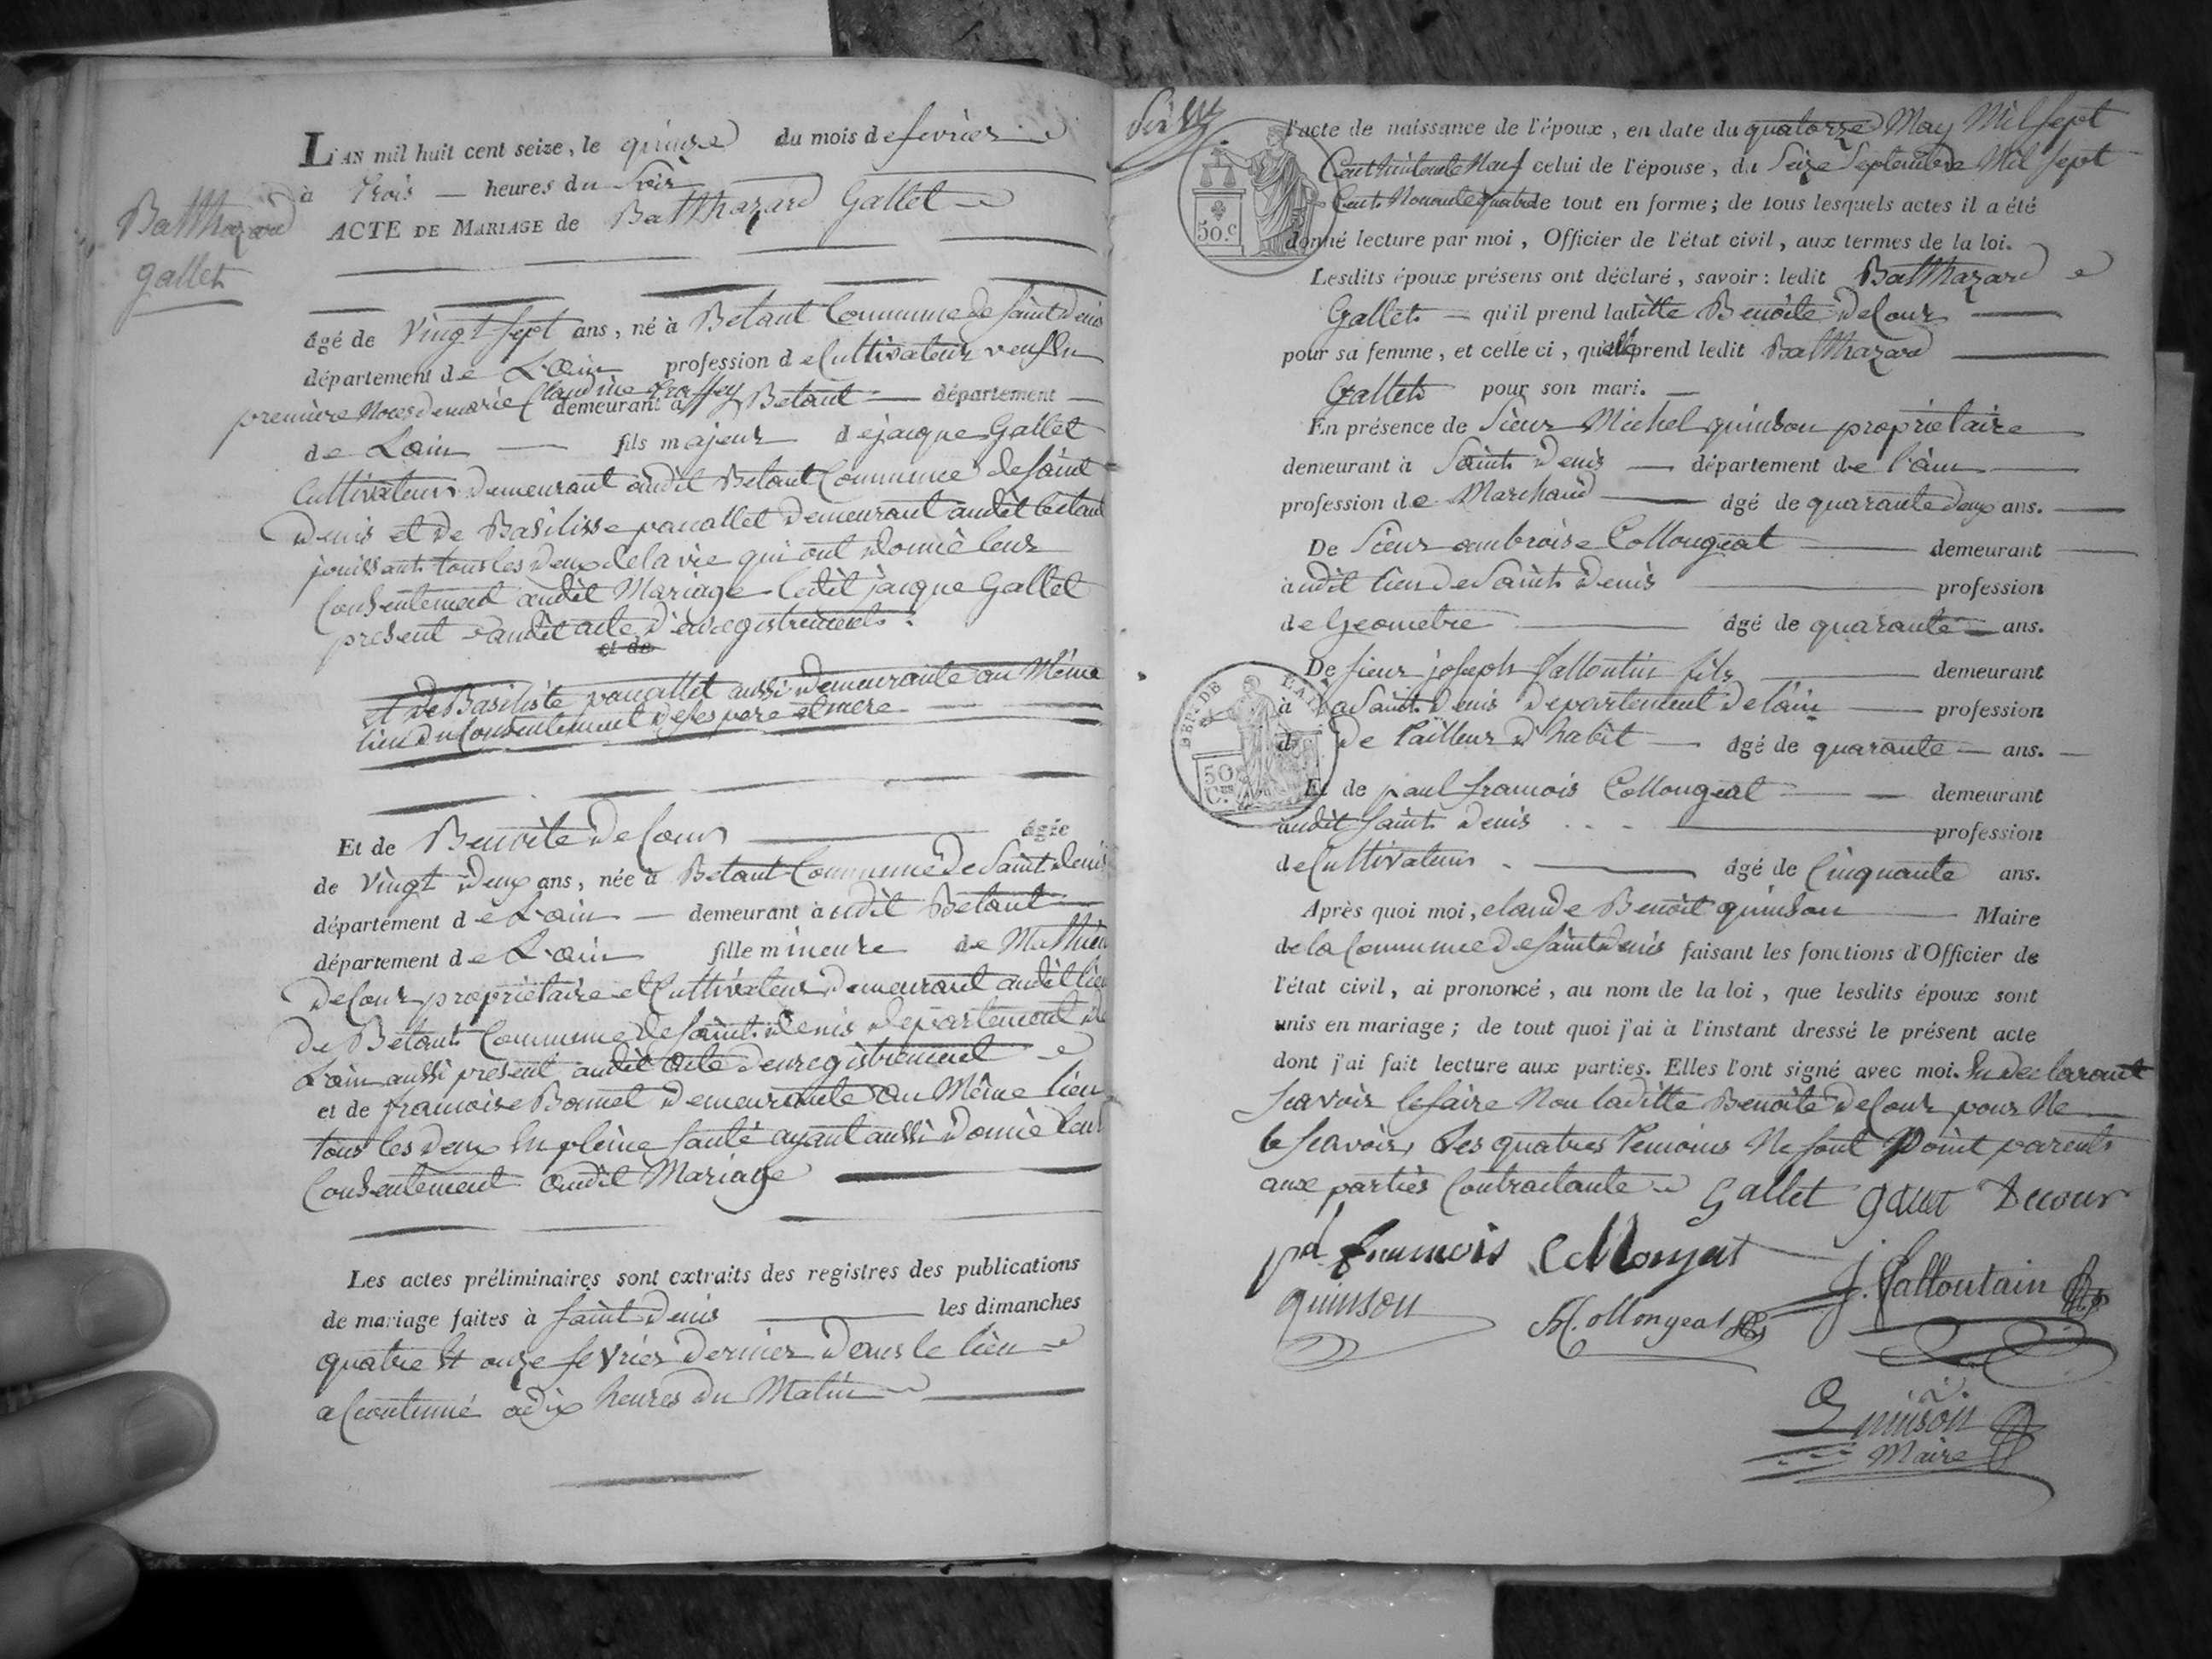 Balthazard
gallet
L'AN mil huit cent seize, le quinze du mois de fevrier
à trois heures du soir
ACTE DE MARIAGE de Balthazard Gallet
âgé de vingt sept ans, né à Betant Commune de saint Denis
département de L'ain profession de Cultivateur veuf en
première Noces de marie Claudine
demeurant à Betant département
de L'ain fils majeur de jacque Gallet
Cultivateur Demeurant audit Betant Commune de saint
Denis et de Basilisse panallet Demeurant audit betant
jouissant tous les deux de la vie qui ont donné leur
Consentement audit Mariage ledit jacque Gallet
present audit acte d'enregistrement.
et de
et de Basilisse panallet aussi Demeurante au Même
lieu du Consentement de ses pere et mere
Et de Benoite DeCour âgée
de vingt deux ans, née à Betant Commune De Saint Denis
département de L'ain demeurant audit Betant
département de L'ain fille mineure de Mathieu
DeCour propriétaire et Cultivateur Demeurant audit lieu
De Betant Commune de saint Denis departement de
L'ain aussi présent audit acte denregistrement
et de francoise Bonnet Demeurante au Même lieu
tous les deux en pleine santé ayant aussi Donné leur
Consentement audit Mariage
Les actes préliminaires sont extraits des registres des publications
de mariage faites à saint Denis les dimanches
quatre et onze fevrier dernier dans le lieu
acoutumé a dix heures du Matin
l'acte de naissance de l'époux, en date du quatorze May Mil sept
Cent huitante Neuf celui de l'épouse, du Seize Septembre Mil sept
Cent Nonante quatre de tout en forme; de tous lesquels actes il a été
donné lecture par moi, Officier de l'état civil, aux termes de la loi.
50.c
Lesdits époux présens ont déclaré, savoir: ledit Balthazard
Gallet qu'il prend laditte Benoite DeCour
pour sa femme, et celle ci, quelle prend ledit Balthazard
Gallet pour son mari.
En présence de Sieur Michel quinson proprietaire
demeurant à Saint Denis département de l'ain
profession de Marchand âgé de quarante deux ans.
De Sieur ambroise Collongeat demeurant
audit lieu de Saint Denis profession
de Geometre âgé de quarante ans.
De sieur joseph Salloutin fils demeurant
à a Saint Denis departement de l'ain profession
de De tailleur d'habit âgé de quarante ans.
DEB. DE
50
Ces
Et de paul francois Collongeat demeurant
audit saint Denis profession
de Cultivateur âgé de Cinquante ans.
Après quoi moi, claude Benoit quinson Maire
de la Commune de saint Denis faisant les fonctions d'Officier de
l'état civil, ai prononcé, au nom de la loi, que lesdits époux sont
unis en mariage; de tout quoi j'ai à l'instant dressé le présent acte
dont j'ai fait lecture aux parties. Elles l'ont signé avec moi. en declarant
scavoir le faire Non laditte Benoite DeCour pour Ne
le scavoir, Les quatres temoins Ne sont point parents
aux parties Contractante Gallet gallet Decour
pd francois Collongeat
quinson A. Collongeat J. Salloutain
Quinson
Maire